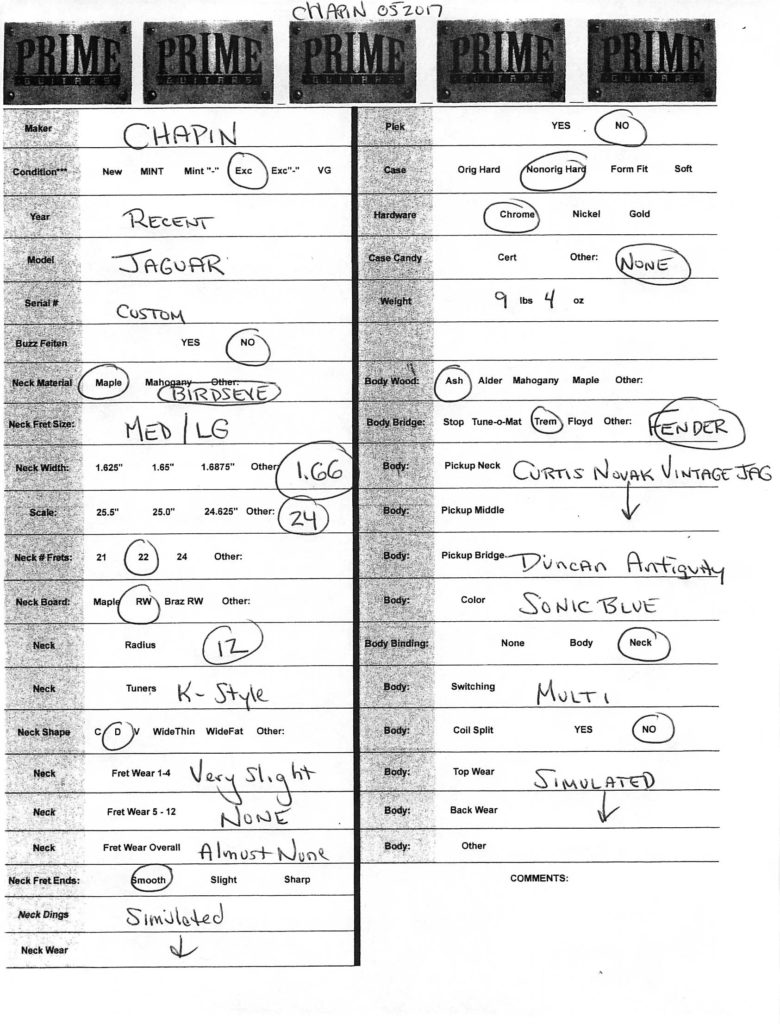 CHAPIN 052017
PRIME GUITARS PRIME GUITARS PRIME GUITARS PRIME GUITARS PRIME GUITARS
Maker CHAPIN
Condition*** New MINT Mint "-" Exc Exc"-" VG
Year RECENT
Model JAGUAR
Serial # CUSTOM
Buzz Feiten YES NO
Neck Material Maple Mahogany Other: BIRDSEYE
Neck Fret Size: MED/LG
Neck Width: 1.625" 1.65" 1.6875" Other: 1.66
Scale: 25.5" 25.0" 24.625" Other: 24
Neck # Frets: 21 22 24 Other:
Neck Board: Maple RW Braz RW Other:
Neck Radius 12
Neck Tuners K-Style
Neck Shape C D V WideThin WideFat Other:
Neck Fret Wear 1-4 Very Slight
Neck Fret Wear 5 - 12 NONE
Neck Fret Wear Overall Almost None
Neck Fret Ends: Smooth Slight Sharp
Neck Dings Simulated
Neck Wear ↓
Plek YES NO
Case Orig Hard Nonorig Hard Form Fit Soft
Hardware Chrome Nickel Gold
Case Candy Cert Other: NONE
Weight 9 lbs 4 oz
Body Wood: Ash Alder Mahogany Maple Other:
Body Bridge: Stop Tune-o-Mat Trem Floyd Other: FENDER
Body: Pickup Neck CURTIS NOVAK VINTAGE JAG
Body: Pickup Middle ↓
Body: Pickup Bridge Duncan Antiquity
Body: Color SONIC BLUE
Body Binding: None Body Neck
Body: Switching MULTI
Body: Coil Split YES NO
Body: Top Wear SIMULATED
Body: Back Wear ↓
Body: Other
COMMENTS: